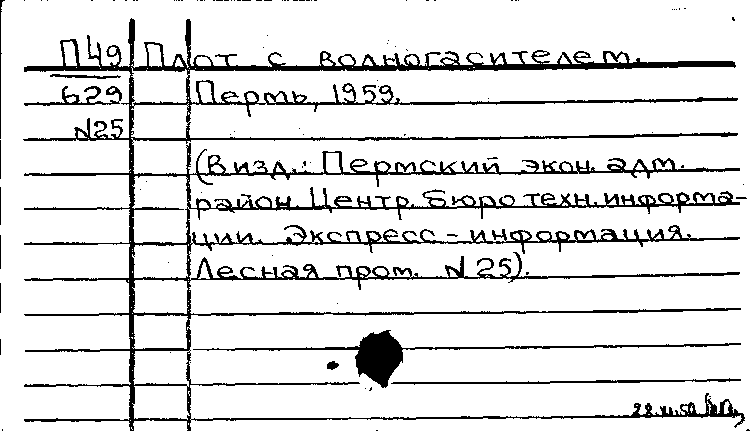 П49 Плот с волногасителем.
629 Пермь, 1959.
N25
(В изд.: Пермский экон. адм.
район. Центр. бюро техн. информа-
ции. Экспресс-информация.
Лесная пром. N 25).